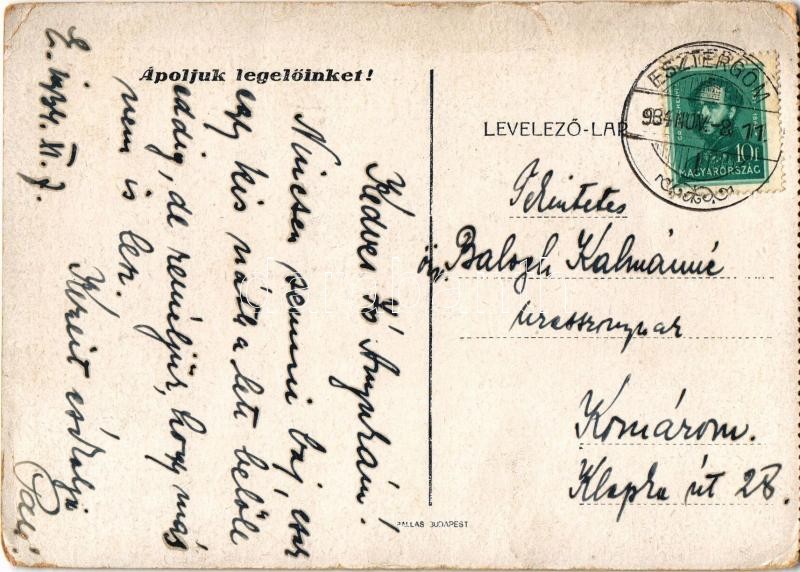 Ápoljuk legelőinket!
LEVELEZŐ-LAP
ESZTERGOM
934 NOV. -8. 11
10f
MAGYARORSZÁG
E. 1934. XI. 7.
Kedves Jó Anyukám!
Nincsen semmi baj, csak
egy kis nátha lett belőle
eddig, de reméljük, hogy más
nem is lesz.
Kezeit csókolja
Pali.
Tekintetes
özv. Balogh Kálmánné
úrasszonynak
Komárom.
Klapka út 28.
PALLAS BUDAPEST